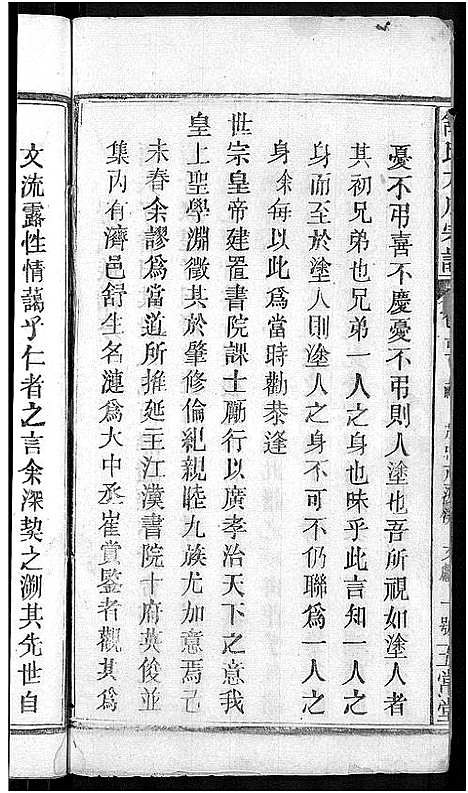 憂不弔喜不慶憂不弔則人塗也吾所視如塗人者
其初兄弟也兄弟一人之身也昧乎此言知一人之
身而至於塗人則塗人之身可不仍聯爲一人之
身余每以此爲當時勸恭逢
世宗皇帝建置書院課士勵行以廣孝治天下之意我
皇上聖學淵徵其於肇修倫紀親睦九族尤加意焉己
未春余謬爲當道所推延主江漢書院十府英俊並
集內有濟邑舒生名漣爲大中丞崔賞鑒者觀其爲
文流露性情藹乎仁者之言余深契之溯其先世自